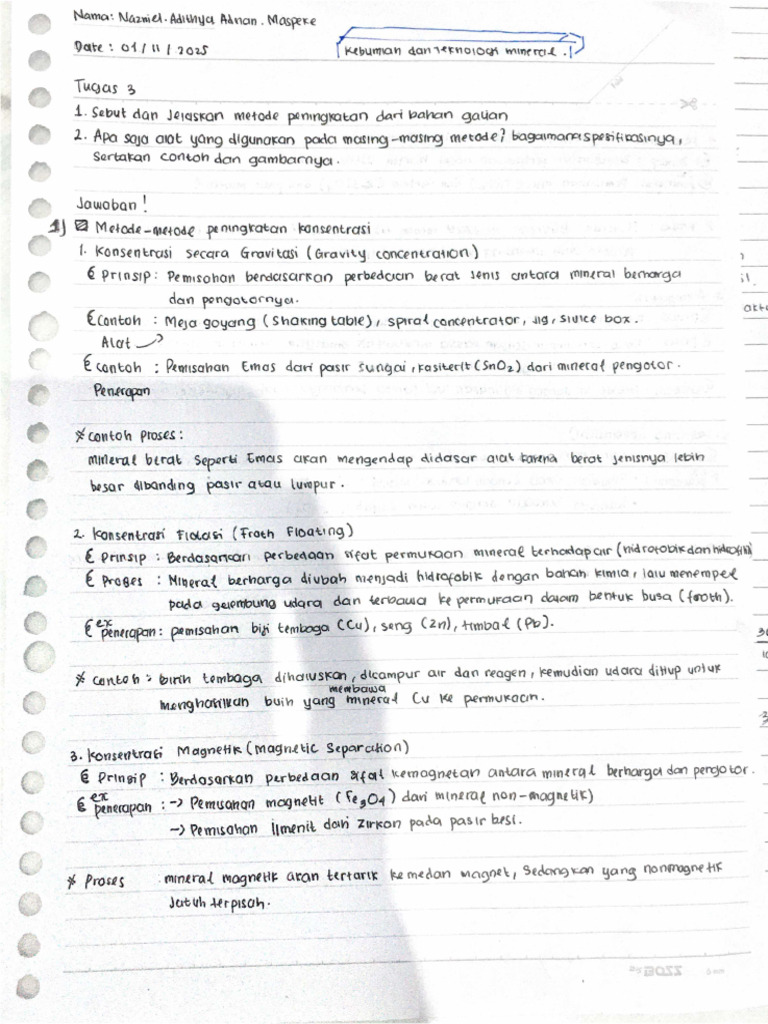 Nama: Nazriel. Adithya Adnan. Maspeke
Date : 01 / 11 / 2025
Kebumian dan Teknologi mineral.
Tugas 3
1. Sebut dan Jelaskan metode peningkatan dari bahan galian
2. Apa saja alat yang digunakan pada masing-masing metode? bagaimana spesifikasinya,
Sertakan contoh dan gambarnya.
Jawaban !
1) Metode-metode peningkatan konsentrasi
1. Konsentrasi secara Gravitasi (Gravity concentration)
Prinsip : Pemisahan berdasarkan perbedaan berat jenis antara mineral berharga
dan pengotornya.
Contoh : Meja goyang (Shaking table), spiral concentrator, jig, sluice box.
Alat
Contoh : Pemisahan Emas dari pasir sungai, kasiterit (SnO2) dari mineral pengotor.
Penerapan
* Contoh proses :
mineral berat seperti Emas akan mengendap didasar alat karena berat jenisnya lebih
besar dibanding pasir atau lumpur.
2. Konsentrasi Flotasi (Froth Floating)
Prinsip : Berdasarkan perbedaan sifat permukaan mineral terhadap air (hidrofobik dan hidrofilik)
Proses : Mineral berharga diubah menjadi hidrofobik dengan bahan kimia, lalu menempel
pada gelembung udara dan terbawa ke permukaan dalam bentuk busa (froth).
ex
penerapan : pemisahan biji tembaga (Cu), seng (Zn), timbal (Pb).
* Contoh : birih tembaga dihaluskan, dicampur air dan reagen, kemudian udara ditiup untuk
menghasilkan buih yang membawa mineral Cu ke permukaan.
3. Konsentrasi Magnetik (Magnetic Separation)
Prinsip : Berdasarkan perbedaan sifat kemagnetan antara mineral berharga dan pengotor.
ex
penerapan : -> Pemisahan magnetit (Fe3O4) dari mineral non-magnetik)
-> Pemisahan Ilmenit dari Zirkon pada pasir besi.
* Proses : mineral magnetik akan tertarik ke medan magnet, Sedangkan yang nonmagnetik
Jatuh terpisah.